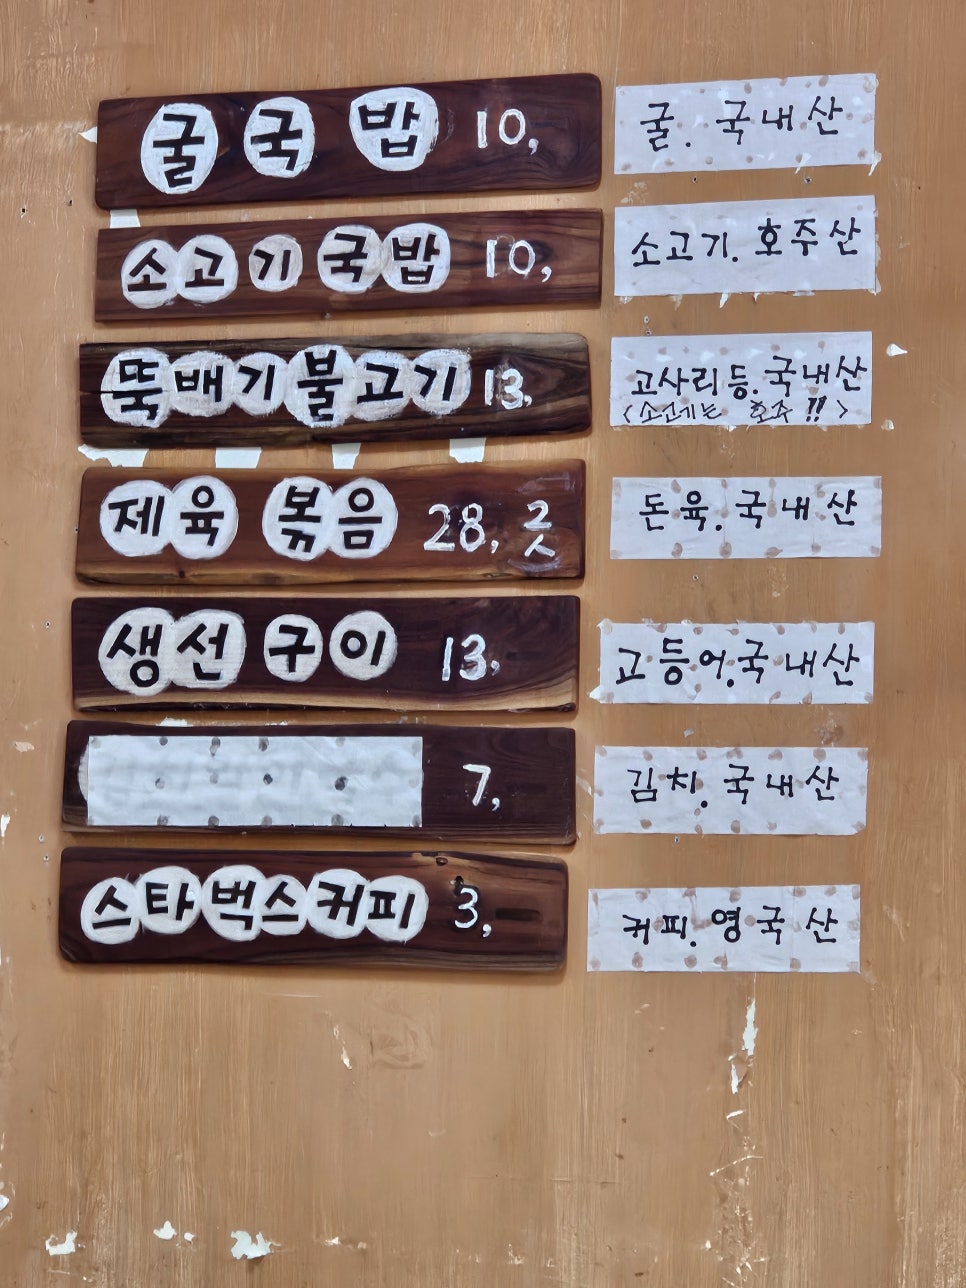 굴국밥 10,
굴. 국내산
소고기 국밥 10,
소고기. 호주산
뚝배기불고기 13,
고사리등.국내산
<소고기는 호주!!>
제육 볶음 28, 2人
돈육.국내산
생선구이 13,
고등어.국내산
7,
김치.국내산
스타벅스커피 3,
커피.영국산